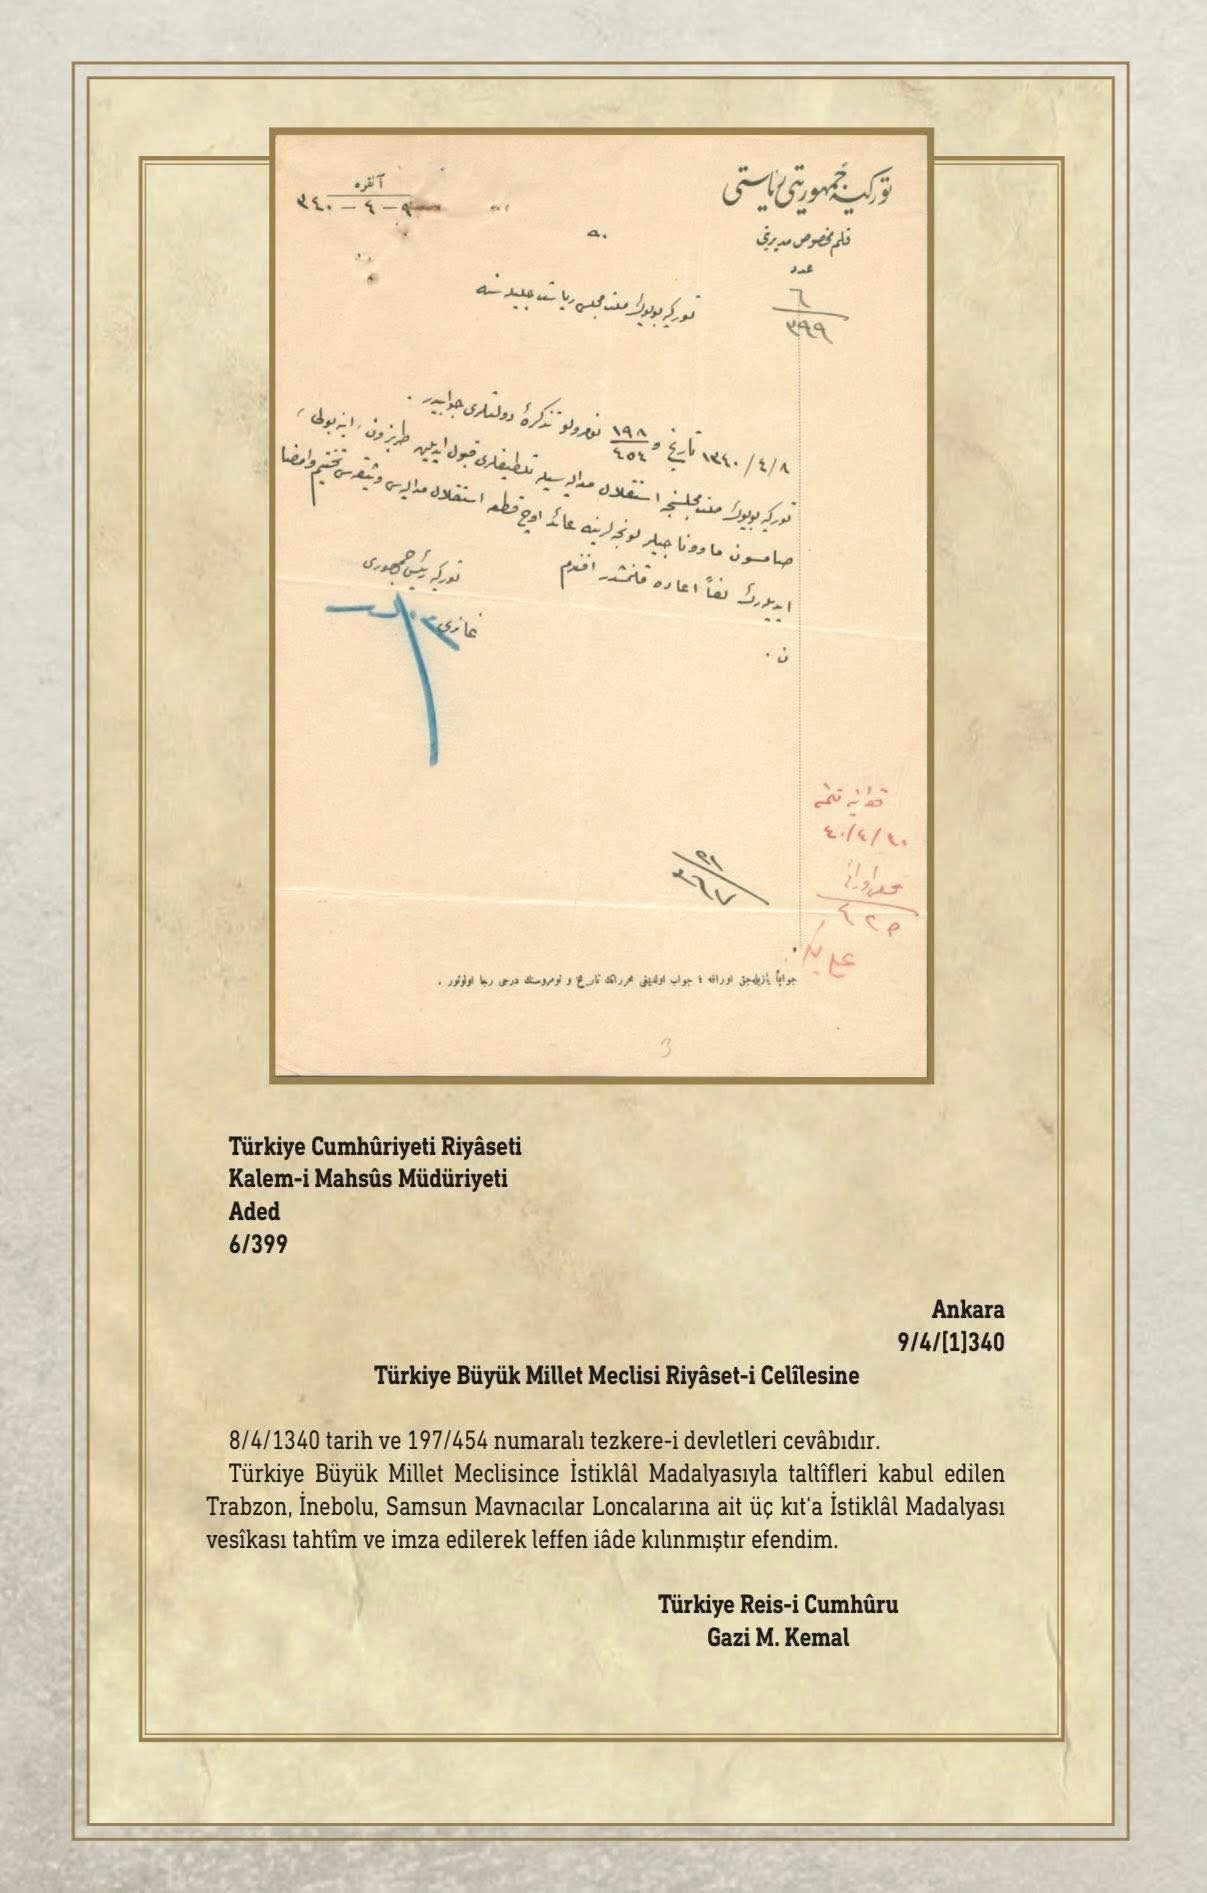 توركيه جمهوريتى رياستى
قلم مخصوص مديريتى
عدد
٦
٣٩٩
آنقره
٩ - ٤ - ٣٤٠
توركيه بويوك ملت مجلسى رياست جليله سنه
٨ / ٤ / ١٣٤٠ تاريخ و ١٩٨/٤٥٤ نومرولو تذكرۀ دولتلرى جوابيدر .
توركيه بويوك ملت مجلسنجه استقلال مداليه سيله تلطيفلرى قبول ايديلن طربزون ، اينه بولى ،
صامسون ماوونا جيلر لونجه لرينه عائد اوچ قطعه استقلال مداليه سى وثيقه سى تختيم و امضا
ايديلرك لفاً اعاده قلنمشدر افندم
توركيه رئيس جمهورى
غازى
جواباً يازيله جق اوراقه ، جواب اولدينى محرراتك تاريخ و نومروسنك درجى رجا اولونور .
3
Türkiye Cumhûriyeti Riyâseti
Kalem-i Mahsûs Müdüriyeti
Aded
6/399
Ankara
9/4/[1]340
Türkiye Büyük Millet Meclisi Riyâset-i Celîlesine
8/4/1340 tarih ve 197/454 numaralı tezkere-i devletleri cevâbıdır.
Türkiye Büyük Millet Meclisince İstiklâl Madalyasıyla taltîfleri kabul edilen
Trabzon, İnebolu, Samsun Mavnacılar Loncalarına ait üç kıt'a İstiklâl Madalyası
vesîkası tahtîm ve imza edilerek leffen iâde kılınmıştır efendim.
Türkiye Reis-i Cumhûru
Gazi M. Kemal